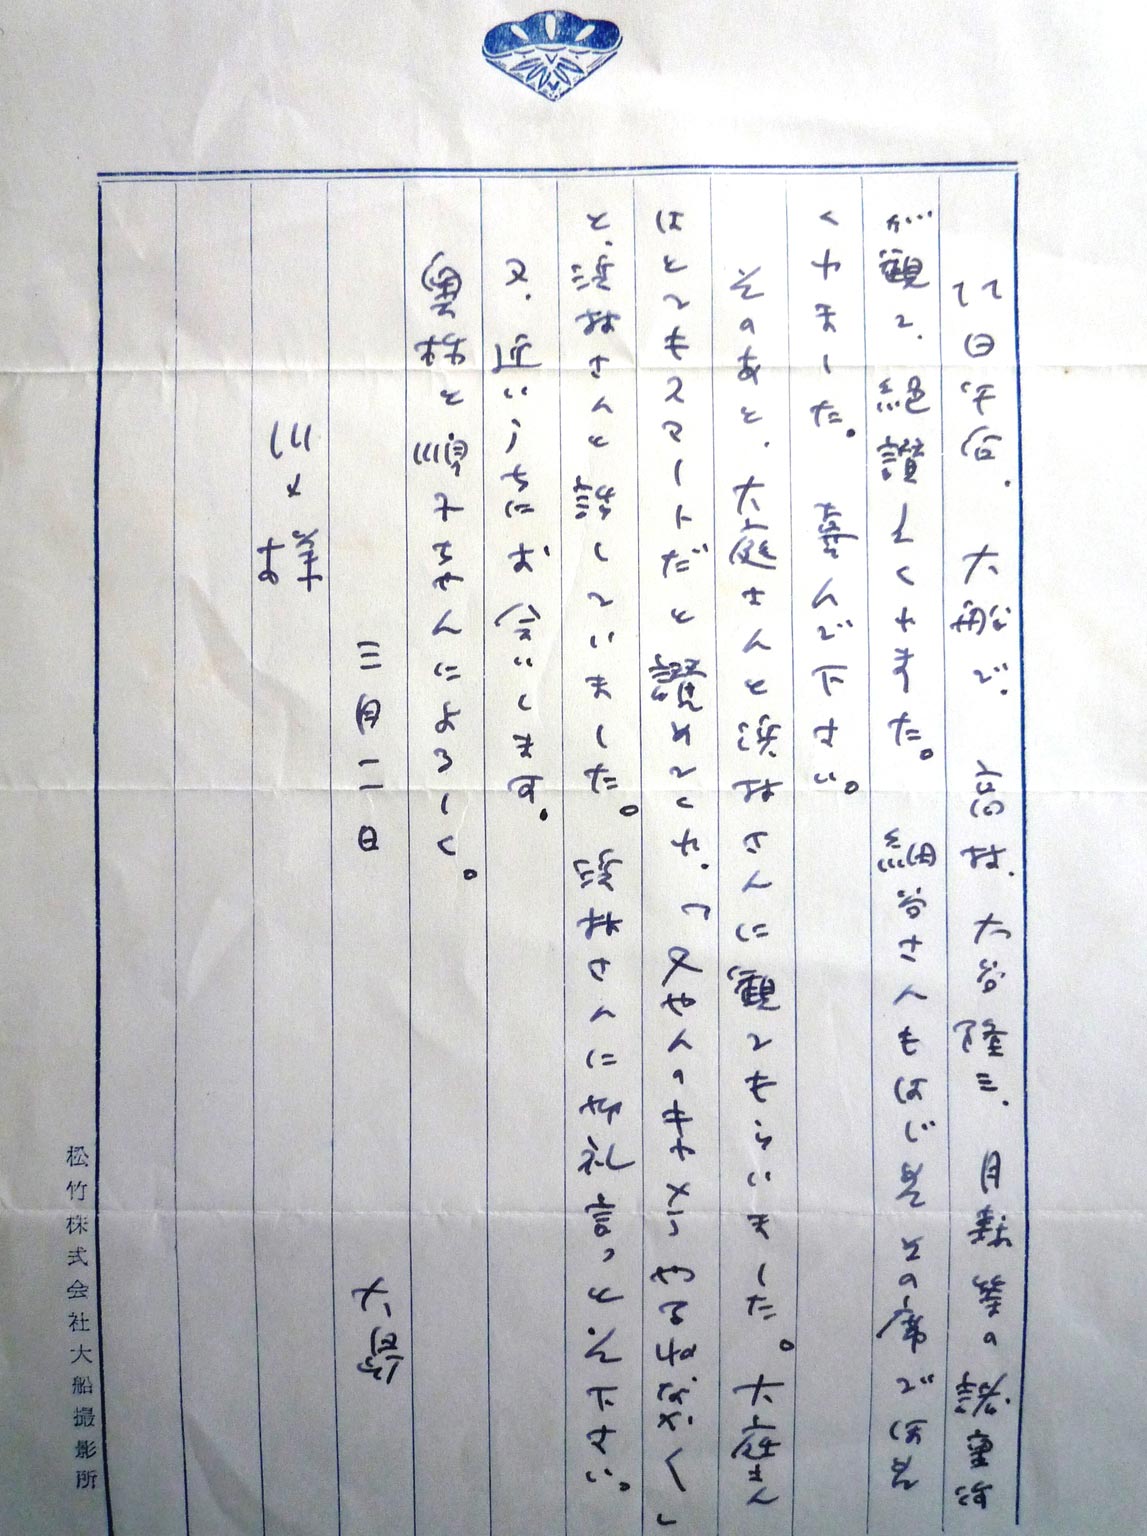 日午后、大船で、高村、大谷隆三、月森等の諸重役
が観て、絶讃してくれました。細谷さんもはじめその席でほめ
てくれました。喜んで下さい。
そのあと、大庭さんと浜村さんに観てもらいました。大庭さん
はとてもスマートだと讃めてくれ、「又やんのキャメラやるねなかく」
と、浜村さんと話していました。浜村さんに御礼言っといて下さい。
又、近いうちにお会いします。
奥様と順子ちゃんによろしく。
三月二日
川又様
松竹株式会社大船撮影所